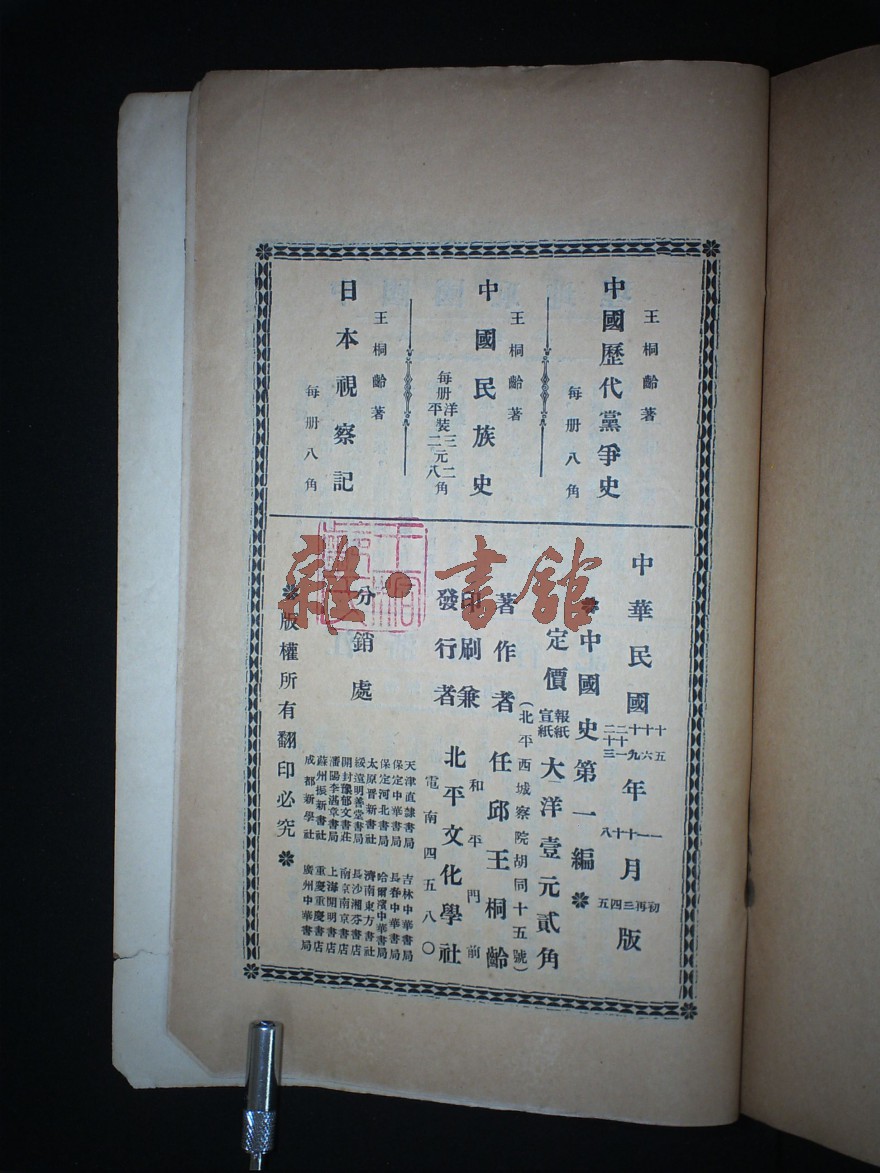 王桐齡著
中國歷代黨爭史
每册八角
王桐齡著
中國民族史
每册洋裝三元二角
平裝二元八角
王桐齡著
日本視察記
每册八角
中華民國十五 十六 十九 二十一 二十三年一 一 十 十 八月初再三四五版
中國史第一編
定價報紙宣紙大洋壹元貳角
(北平西城察院胡同十五號)
著作者 任邱王桐齡
印刷兼發行者 北平文化學社
和平門前
電南四五八〇
分銷處
天津直隸書局 吉林中華書局
保定中華書局 長春中華書局
保定河北書局 哈爾濱中華書局
太原晋新書社 濟南東方書社
綏遠明善堂書局 長沙湘芬書店
開封豫郁文書莊 南京南京書店
瀋陽李湛章書局 上海開明書店
蘇州振新書社 重慶重慶書店
成都新學社 廣州中華書局
版權所有翻印必究
雜·書館